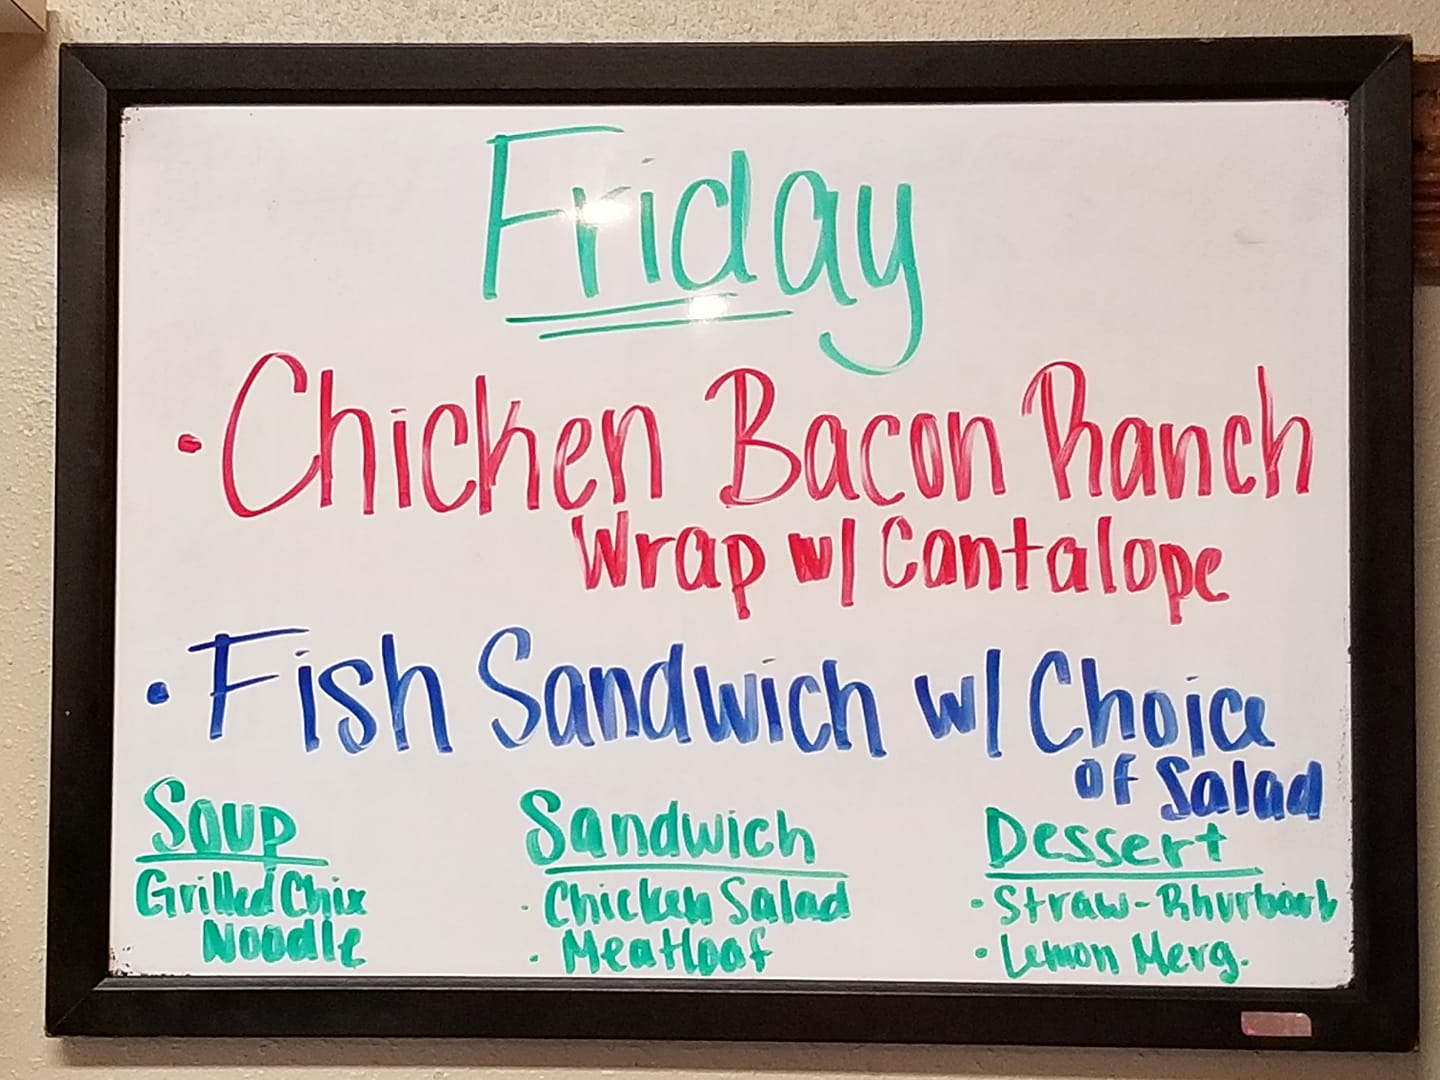 Friday
• Chicken Bacon Ranch
Wrap w/ Cantalope
• Fish Sandwich w/ Choice
of Salad
Soup
Grilled Chix
Noodle
Sandwich
• Chicken Salad
• Meatloaf
Dessert
• Straw-Rhurbarb
• Lemon Merg.